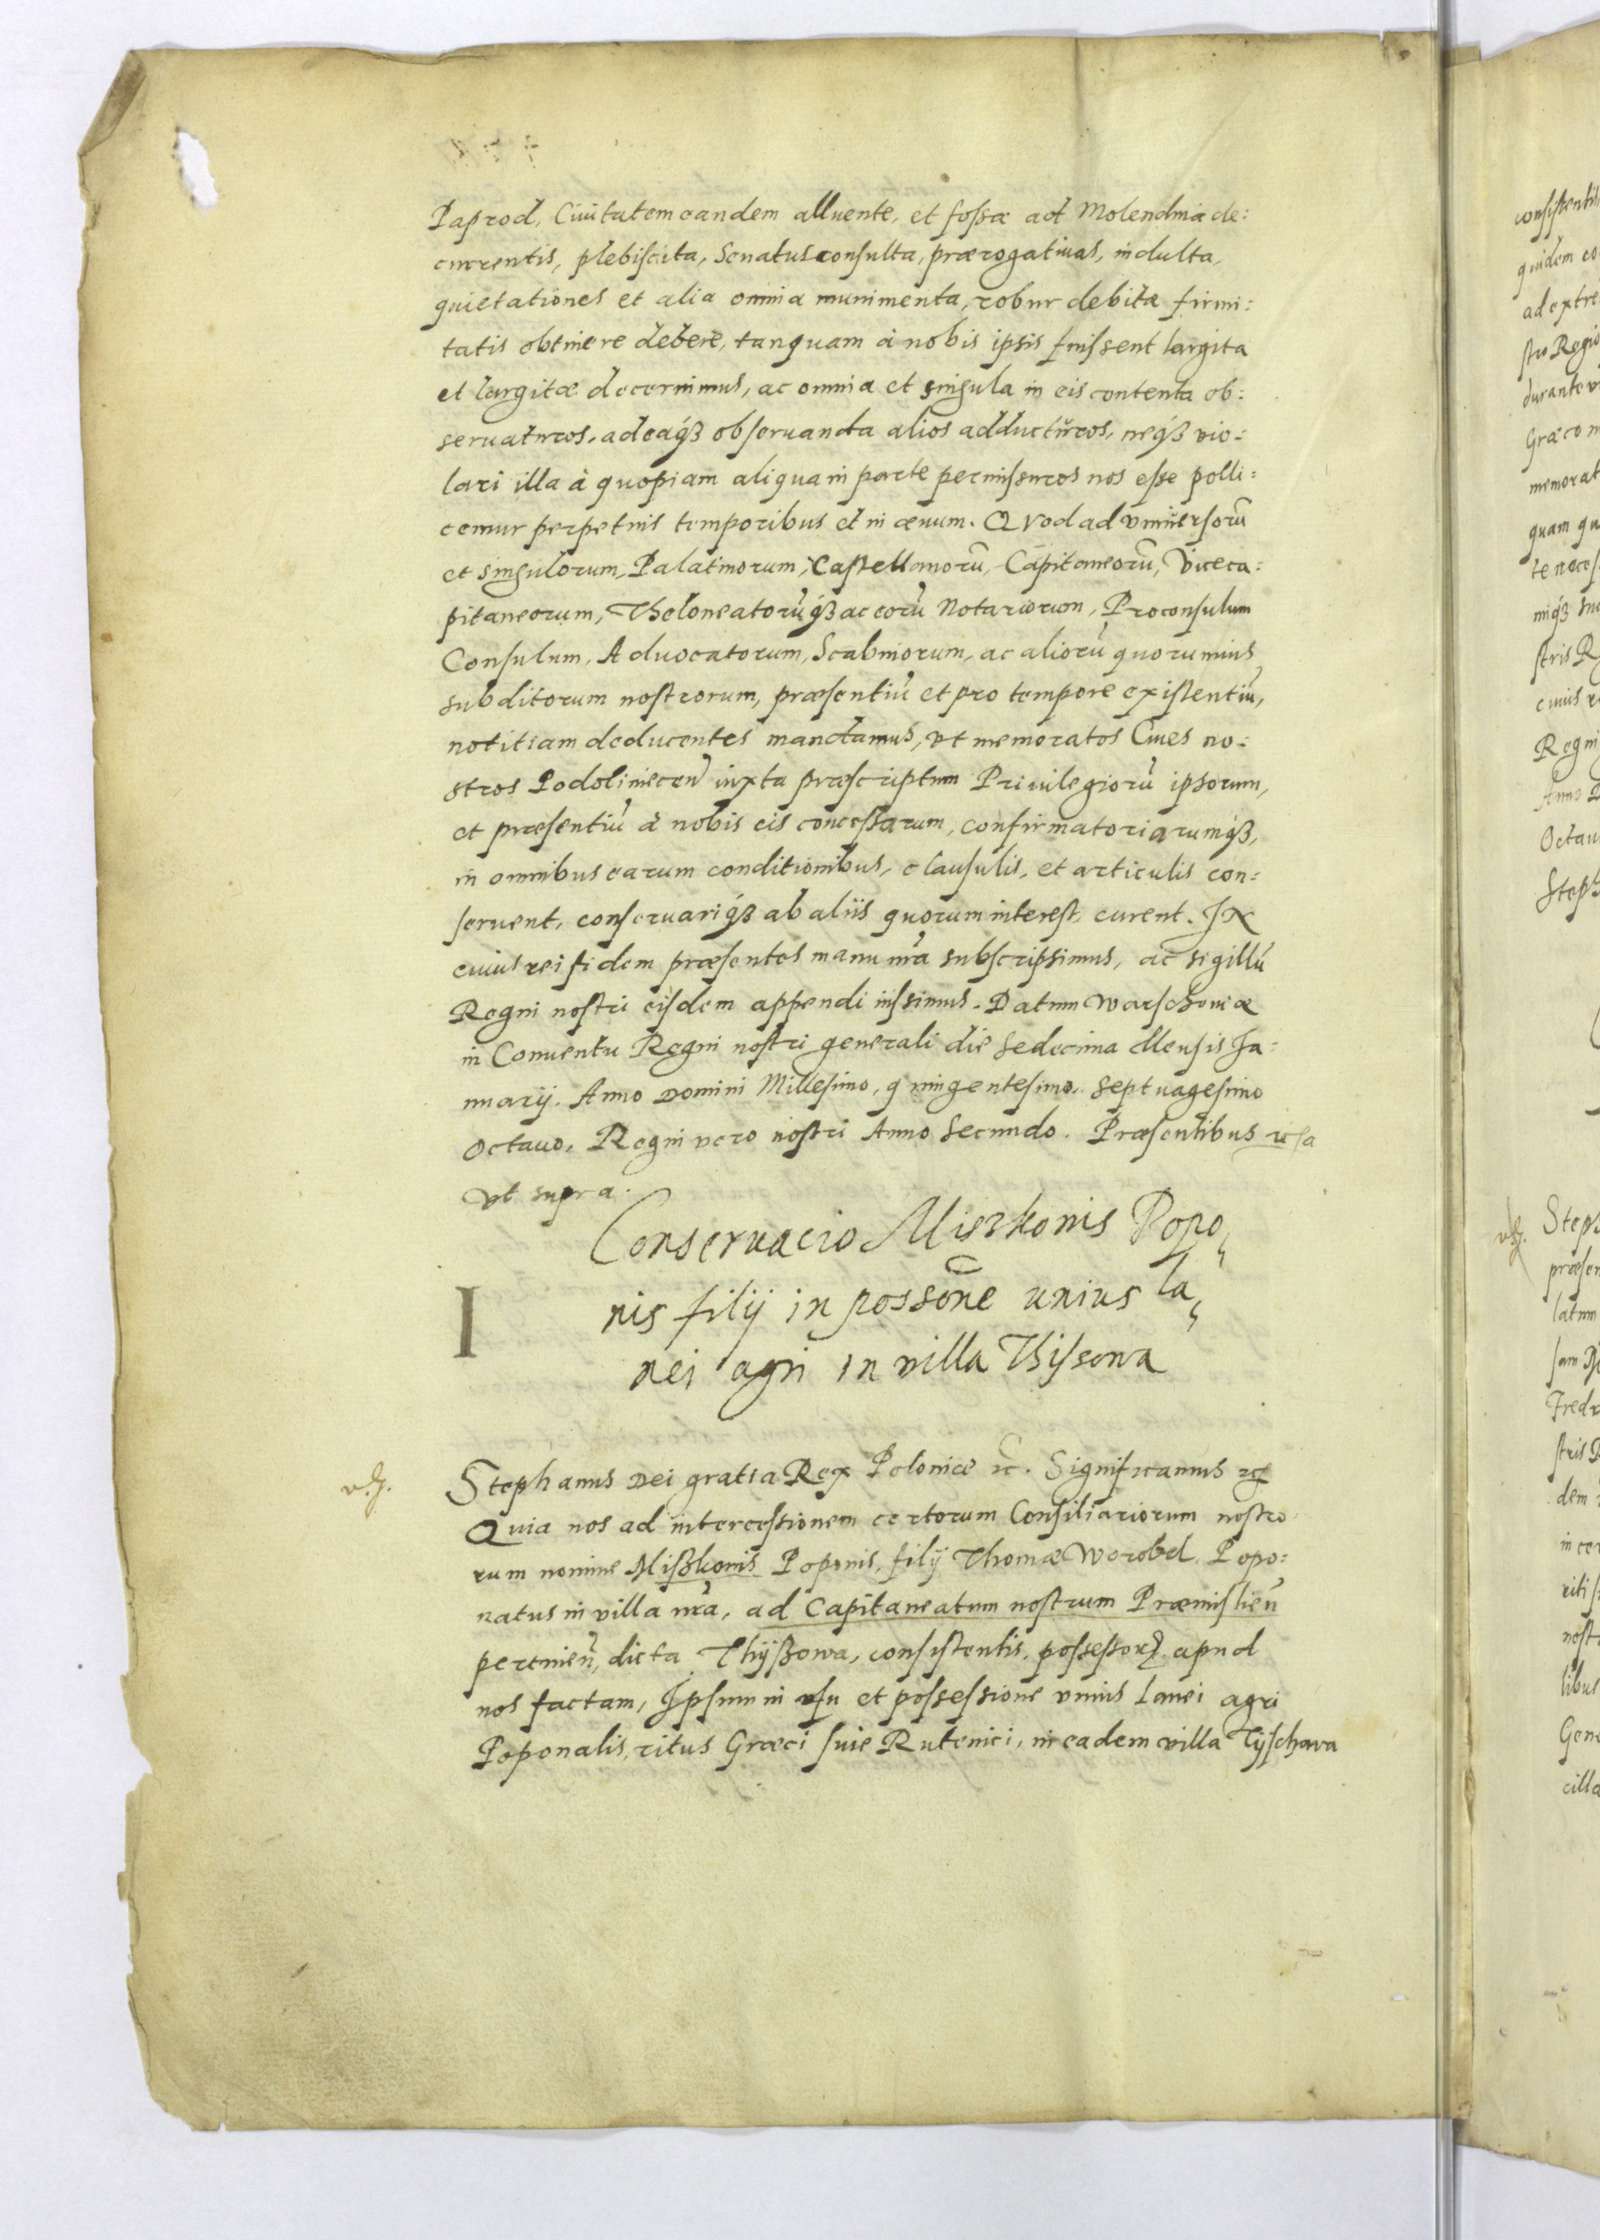 Paprod, Ciuitatem eandem alluente, et fossæ ad Molendina de:
currentis, plebiscita, Senatusconsulta, prærogatiuas, indulta,
quietationes et alia omnia munimenta, robur debitæ firmi:
tatis obtinere debere, tanquam à nobis ipsis fuissent largita
et largitæ decernimus, ac omnia et singula in eis contenta ob:
seruaturos, adeaq́ꝫ obseruanda alios adducturos, neq́ꝫ vio:
lari illa à quopiam aliqua in parte permissuros nos esse polli:
cemur perpetuis temporibus et in æuum. Qvod ad vniuersorū
et singulorum, Palatinorum, Castellanorū, Capitaneorū, Viceca:
pitaneorum, Theloneatorūq́ꝫ ac eorū Notariorum, Proconsulum
Consulum, Aduocatorum, Scabinorum, ac aliorū quorumuis
subditorum nostrorum, præsentiū et pro tempore existentiū,
notitiam deducentes mandamus, vt memoratos Ciues no:
stros Podoliniecen̄ iuxta præscriptum Priuilegiorū ipsorum,
et præsentiū à nobis eis concessarum, confirmatoriarumq́ꝫ,
in omnibus earum conditionibus, clausulis, et articulis con:
seruent, conseruariq́ꝫ ab aliis quorum interest, curent. IN
cuius rei fidem præsentes manu nr̄a subscripsimus, ac sigillū
Regni nostri eisdem appendi iussimus. Datum Warschouiæ
in Conuentu Regni nostri generali die sedecima Mensis Ja:
nuarij. Anno Domini Millesimo, quingentesimo, septuagesimo
octauo, Regni vero nostri Anno Secundo. Præsentibus
vt supra.
Conseruacio Miszkonis Popo
nis filij in possōne unius la
nei agri in villa Thisowa
I
Stephanus Dei gratia Rex Poloniæ ꝛc̄. Significamus ꝛc̄
Quia nos ad intercessionem certorum Consiliariorum nostro
rum nomine Miszkonis Poponis, filij Thomæ Worobel, Popo:
natus in villa nr̄a, ad Capitaneatum nostrum Præmislien̄
pertinen̄, dicta Thyszowa, consistentis, possessor apud
nos factam, Ipsum in vsu et possessione vnius lanei agri
Poponalis, ritus Græci siue Rutenici, in eadem villa Tyschowa